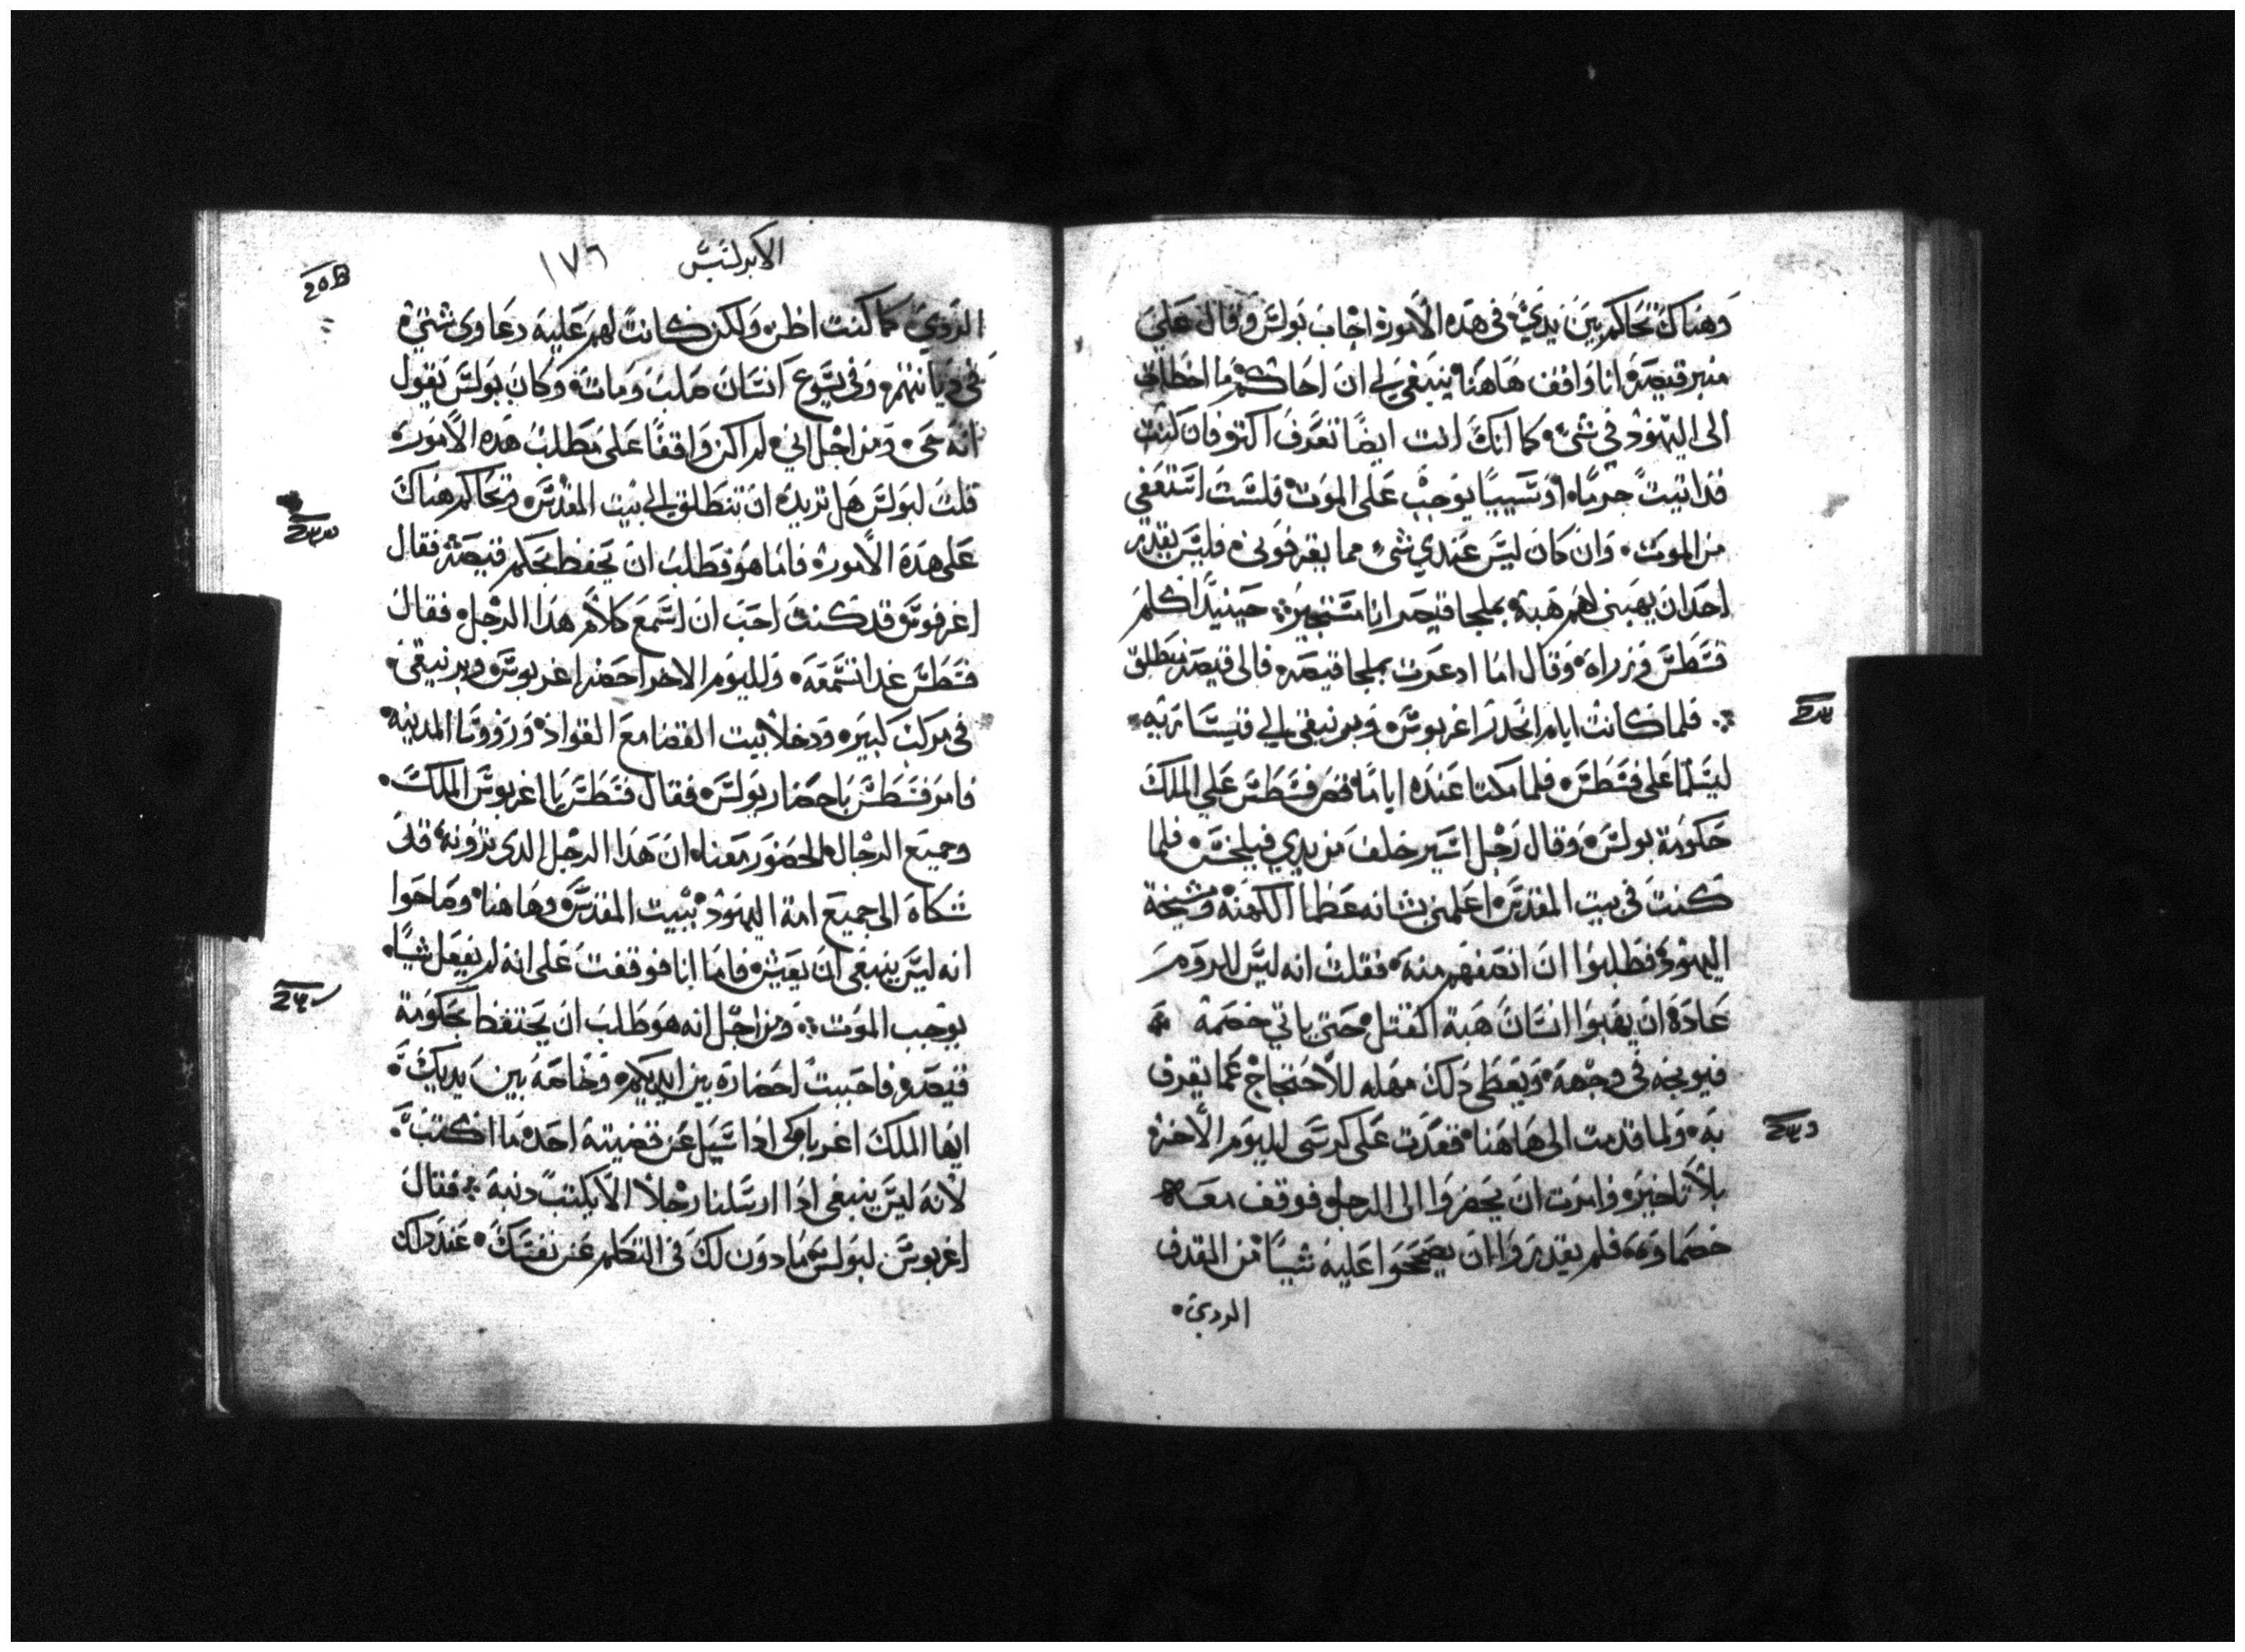 وهناك تحاكم بين يدي في هذه الامور اجاب بولس وقال علي
منبر قيصر انا واقف هاهنا ينبغي لي ان احاكم ما اخطات
الى اليهود في شي كما انك انت ايضا تعرف اكثر فان كنت
قد اتيت جرما او سببا يوجب على الموت فلست استعفي
من الموت وان كان ليس عندي شي مما يقرفوني فليس يقدر
احد ان يهبني لهم هبة بملجا قيصر انا مستجير حينيد اكلم
فسطس وزراه وقال اما ادعوت بملجا قيصر فالى قيصر تنطلق
فلما كانت ايام انحدر اغربوس وبرنيقي الي قيسارية
ليسلما على فسطس فلما مكثا عنده اياما قص فسطس علي الملك
حكومة بولس وقال رجل اسير خلف من يدي فيلخس فلما
كنت في بيت المقدس اعلمني بشانه عظما الكهنة ومشيخة
اليهود فطلبوا ان انصفهم منه فقلت انه ليس للروم
عادة ان يهبوا انسان هبة القتل حتى ياتي خصمة
فيوبخه في وجهه ويعطى ذلك مهله للاحتجاج عما يقرف
به ولما قدمت الى هاهنا قعدت على كرسى لليوم الاخر
بلا تاخير وامرت ان يحضروا الى الرجل فوقف معه
خصماوه فلم يقدروا ان يصححوا عليه شيا من القرف
الردي
الابركسيس ١٧٦
الردي كما كنت اظن ولكن كانت لهم عليه دعاوى شتي
في ديانتهم وفي يسوع انسان صلب ومات وكان بولس يقول
انه حي ومن اجل اني لم اكن واقفا على مطلب هذه الامور
قلت لبولس هل تريد ان تنطلق الي بيت المقدس وتحاكم هناك
على هذه الامور فاما هو فطلب ان يحفظ بحكم قيصر فقال
اغرفوس قد كنت احب ان اسمع كلام هذا الرجل فقال
فسطس غدا تسمعه ولليوم الاخر احضر اغربوس وبرنيقي
في مركب كبير ودخلا بيت القضا مع القواد وروسا المدينه
فامر فسطس باحضار بولس فقال فسطس يا اغربوس الملك
وجميع الرجال الحضور معنا ان هذا الرجل الذي ترونه قد
شكاه الى جميع امة اليهود ببيت المقدس وهاهنا وصاحوا
انه ليس ينبغي ان يعيش فاما انا فوقفت على انه لم يفعل شيا
يوجب الموت ومن اجل انه هو طلب ان يحتفظ بحكومة
قيصر فاحببت احضاره بين ايديكم وخاصة بين يديك
ايها الملك اغربا لكي اذا سيل عن قضيته اجد ما اكتب
لانه ليس ينبغي اذا ارسلنا رجلا الا بكتب دنبه فقال
اغربوس لبولس مادون لك في التكلم عن نفسك عند ذلك